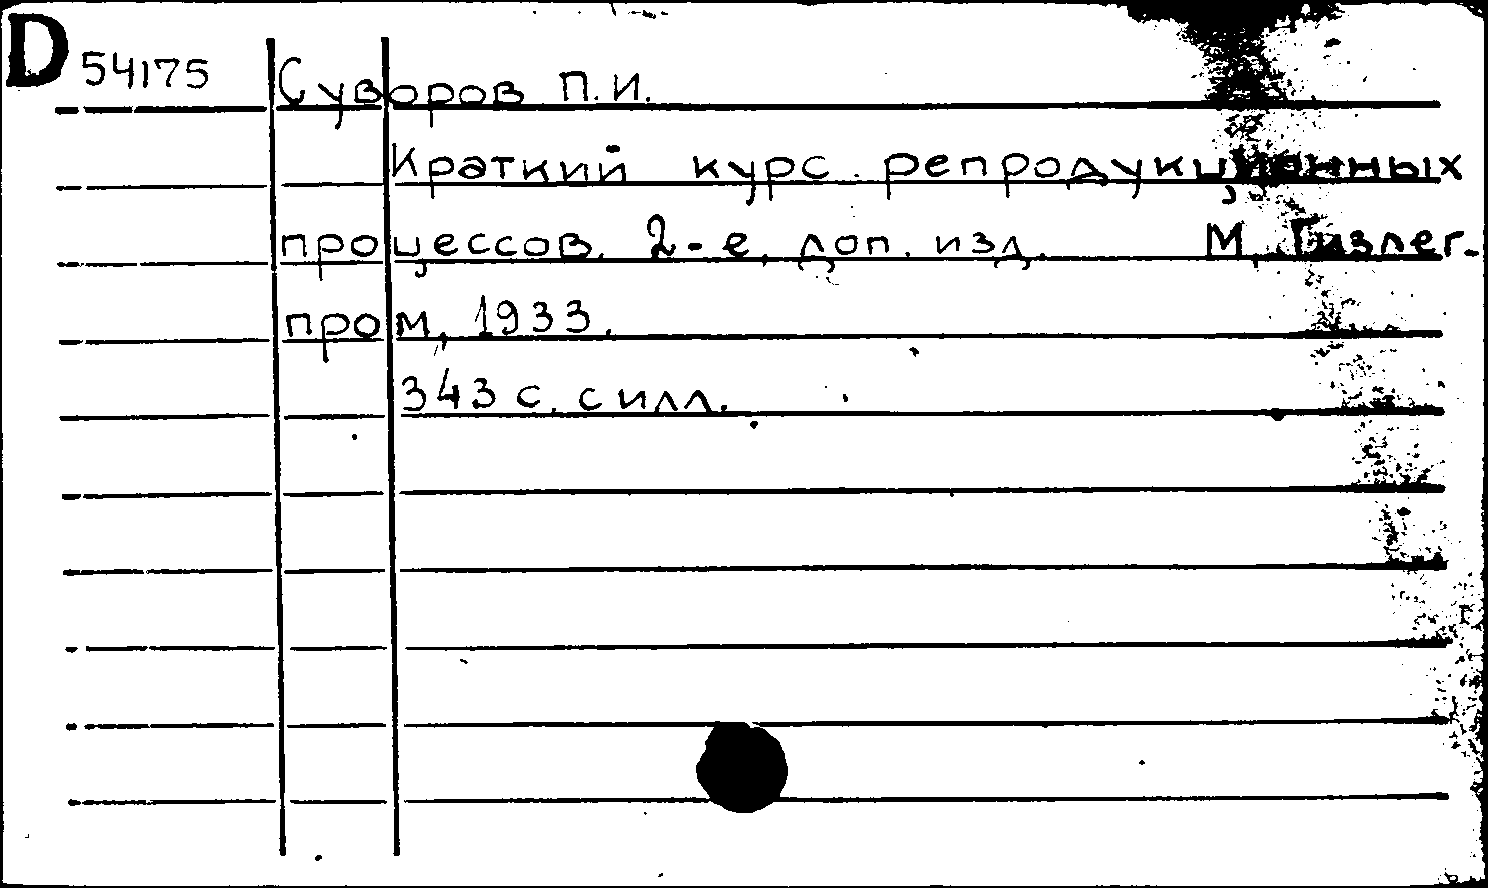 D 54175 Суворов П.И.
Краткий курс репродукционных
процессов. 2-е, доп. изд. М, Гизлег-
пром, 1933.
343 с. с илл.